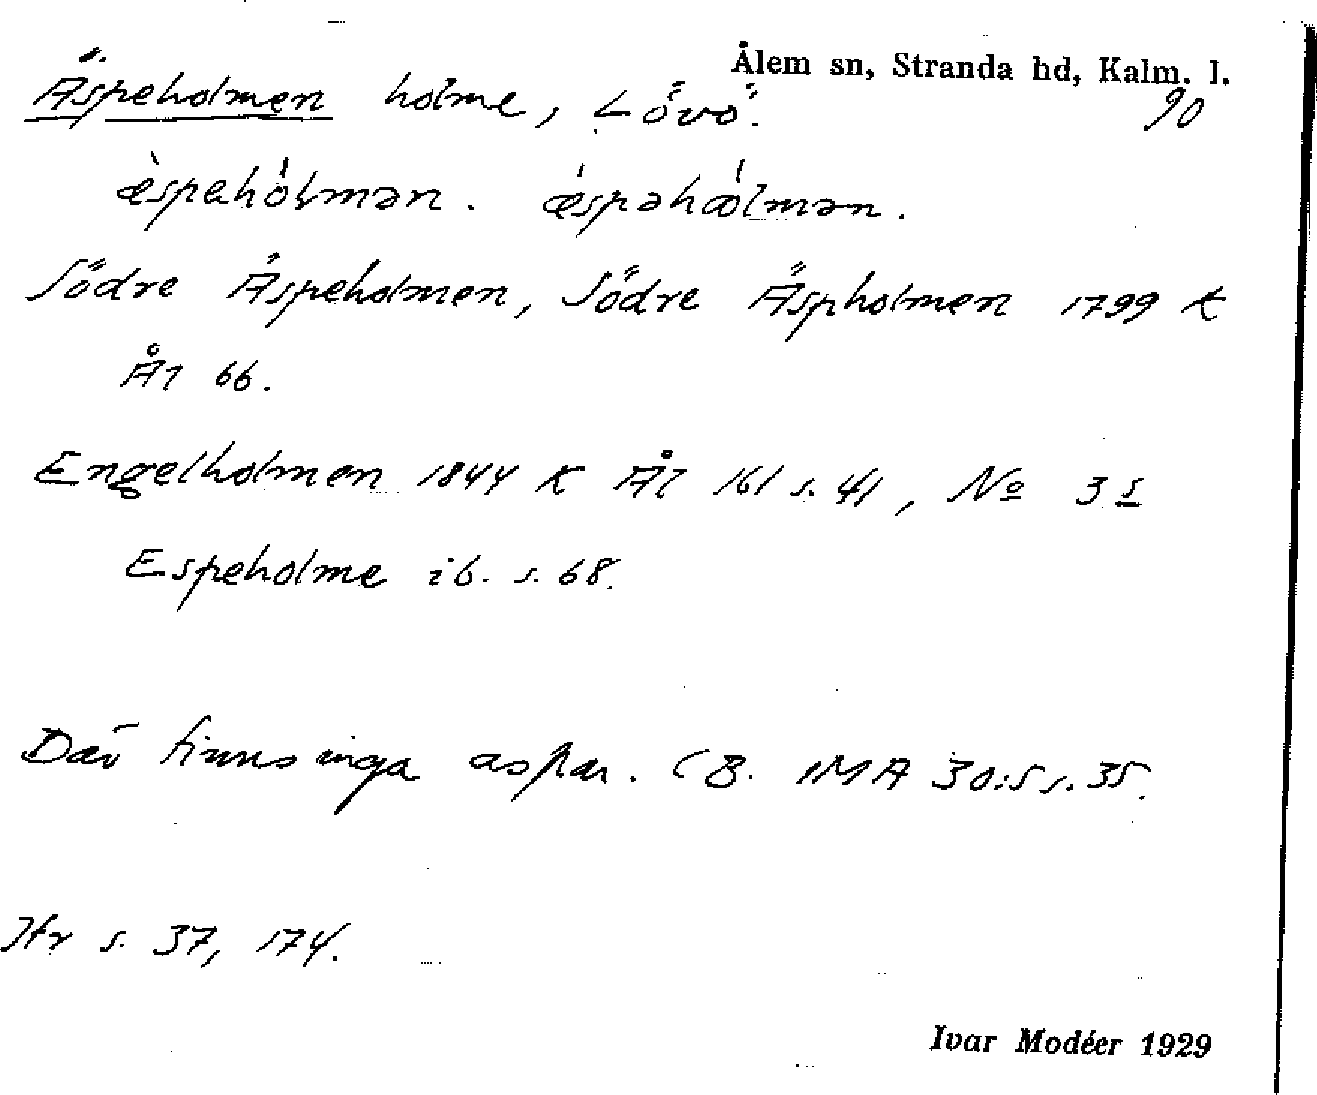 Ålem sn, Stranda hd, Kalm. l.
Äspeholmen holme, Lövö.
90
Södre Äspeholmen, Södre Äspholmen 1799 K
Ål 66.
Engelholmen 1844 K Ål 161 s. 41, No 3 s
Espeholme ib. s. 68.
Där finns inga aspar. CB. IMA 30:5 s. 35.
Jfr s. 37, 174.
Ivar Modéer 1929